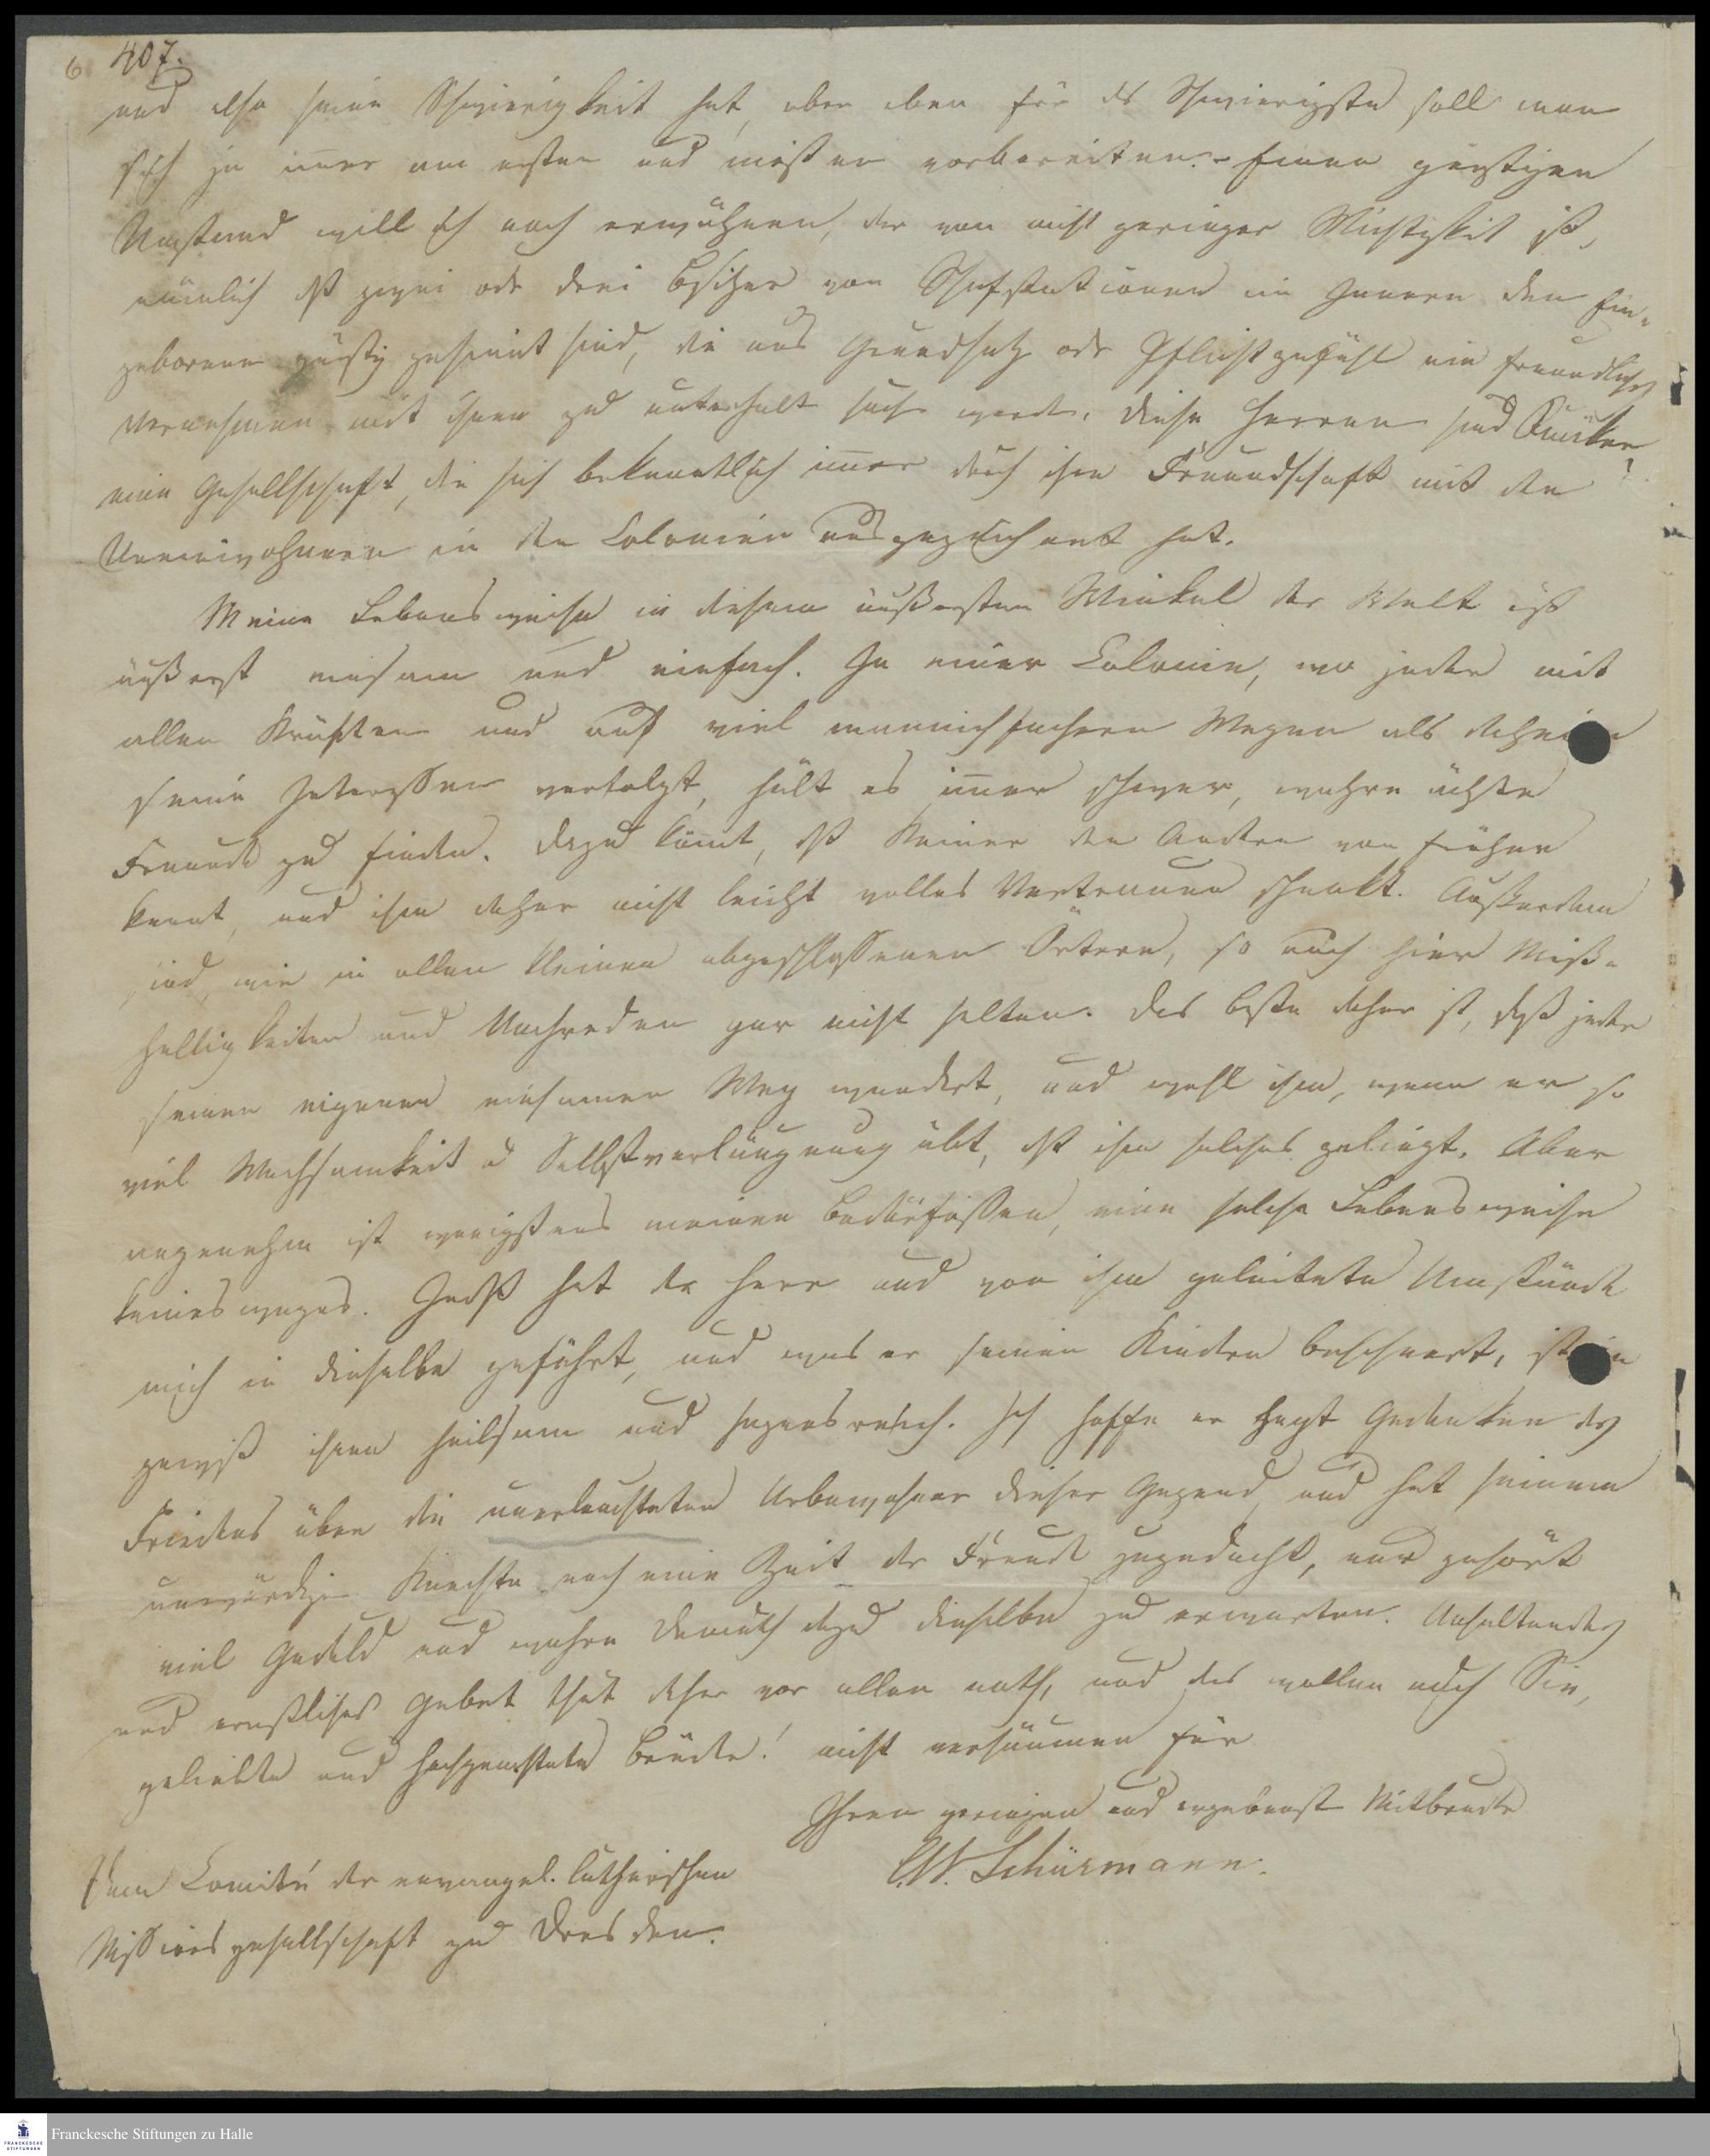 6 407.
und also seine Schwierigkeit hat, aber eben für das Schwierigste soll man
sich ja imer am ersten und meisten vorbereiten. - Einen günstigen
Umstand will ich noch erwähnen, der von nicht geringer Wichtigkeit ist,
nämlich daß zwei oder drei Besitzer von Schafstationen im Innern den Ein-
geborenen günstig gesinnt sind, die aus Grundsatz oder Pflichtgefühl ein freundliches
Vernehmen mit ihnen zu unterhalten suchen werden. Diese Herren sind Quäker
eine Gesellschaft, die sich bekanntlich imer durch ihre Freundschaft mit den
Ureinwohnern in den Colonien ausgezeichnet hat.
Meine Lebensweise in diesem äußersten Winkel der Welt ist
äußerst einsam und einfach. In einer Colonie, wo jeder mit
allen Kräften und auf viel mannichfachern Wegen als daheim
seine Interessen verfolgt, hält es imer schwer, wahre ächte
Freunde zu finden. Dazu kömt, daß Keiner den Andern von früher
kennt, und ihm daher nicht leicht volles Vertrauen schenkt. Außerdem
sind, wie in allen kleinen abgeschlossenen Örtern, so auch hier Miß-
helligkeiten und Nachreden gar nicht selten. Das beste daher ist, daß jeder
seinen eigenen einsamen Weg wandert, und wohl ihm, wenn er so
viel Wachsamkeit u Selbstverläugnung übt, daß ihm solches gelingt. Aber
angenehm ist wenigstens meinen Bedürfnissen, eine solche Lebensweise
keinesweges. Indeß hat der Herr und von ihm geleitete Umstände
mich in dieselbe geführt, und was er seinen Kindern bescheert, ist
gewiß ihnen heilsam und segensreich. Ich hoffe er hegt Gedanken des
Friedens über die unerleuchteten Urbewohner dieser Gegend und hat seinem
unwürdigen Knechte noch eine Zeit der Freude zugedacht, nur gehört
viel Geduld und wahre Demuth dazu dieselbe zu erwarten. Anhaltendes
und ernstliches Gebet thut daher vor allen noth, und das wollen auch Sie,
geliebte und hochgeachtete Brüder! nicht versäumen für
Ihren geringen und ergebenst Mitbruder
C.W. Schürmann.
Dem Comité der evangel. lutherischen
Missionsgesellschaft zu Dresden.
FRANCKESCHE STIFTUNGEN
Franckesche Stiftungen zu Halle